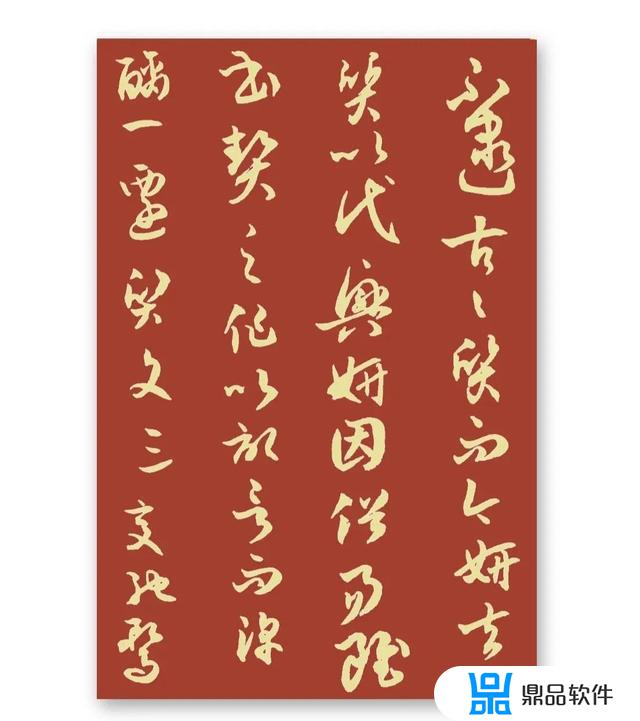 不逮古〻質而今妍夫
質以代興妍因俗易雖
書契之作以記言而淳
醨一遷質文三變馳騖
鼎品软件